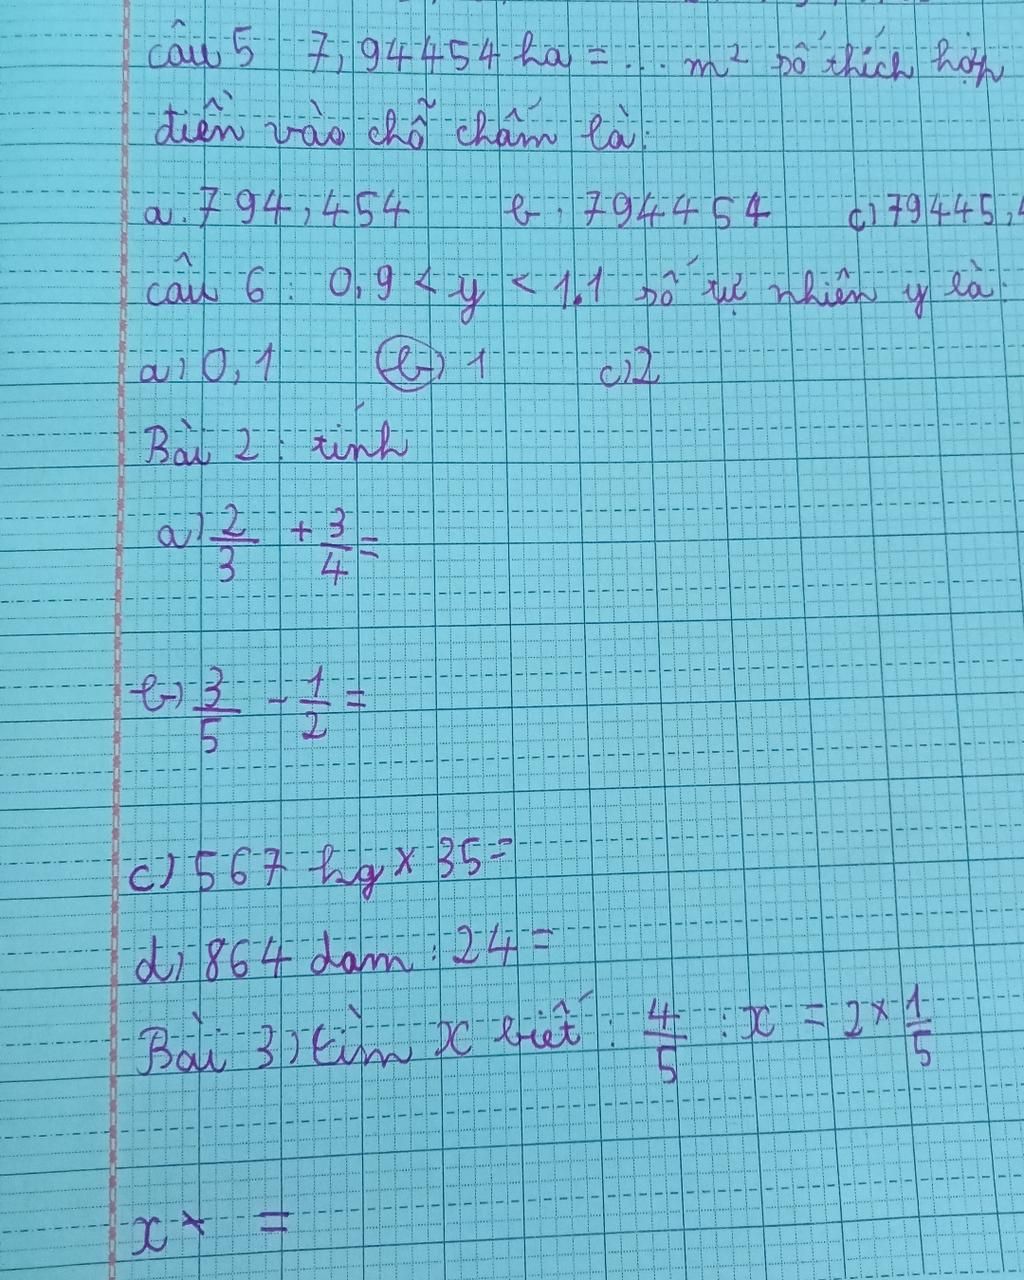 câu 5 7,94454 ha = ... m² số thích hợp
điền vào chỗ chấm là:
a. 794,454 b, 794454 c) 79445,4
câu 6: 0,9 < y < 1,1 số tự nhiên y là:
a) 0,1 b) 1 c) 2
Bài 2: tính
a) 2/3 + 3/4 =
b) 3/5 - 1/2 =
c) 567 hg x 35 =
d) 864 dam : 24 =
Bài 3) tìm x biết: 4/5 : x = 2 x 1/5
x x =